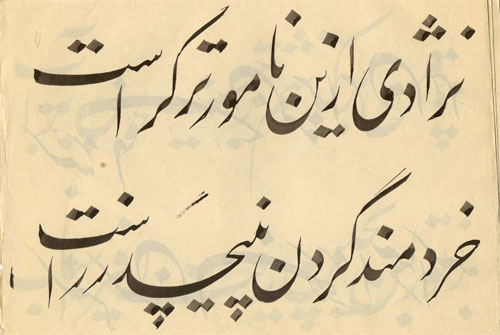 نژادی ازین نامورتر کراست
خردمند گردن نپیچد ز راست